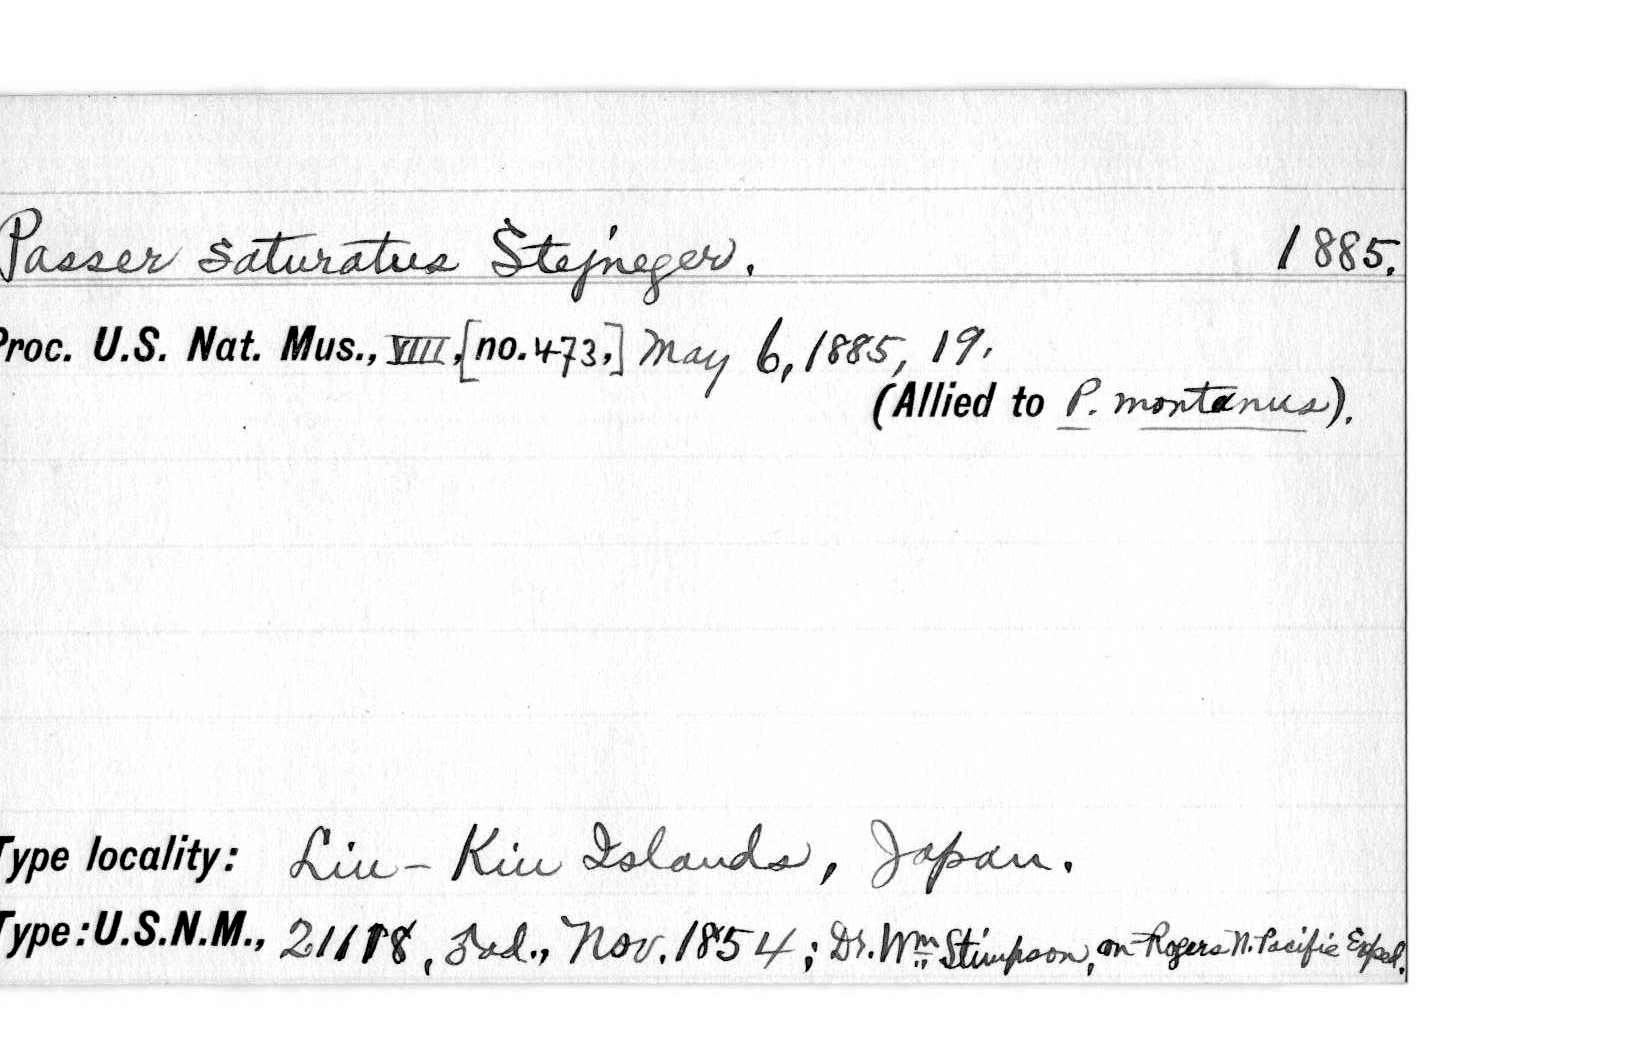 Passer saturatus Stejneger. 1885.
Proc. U.S. Nat. Mus., VIII, [no. 473,] May 6, 1885, 19.
(Allied to P. montanus).
Type locality: Liu-Kiu Islands, Japan.
Type: U.S.N.M., 21118, ad., Nov. 1854; Dr. Wm. Stimpson, on Rogers N. Pacific Exped.